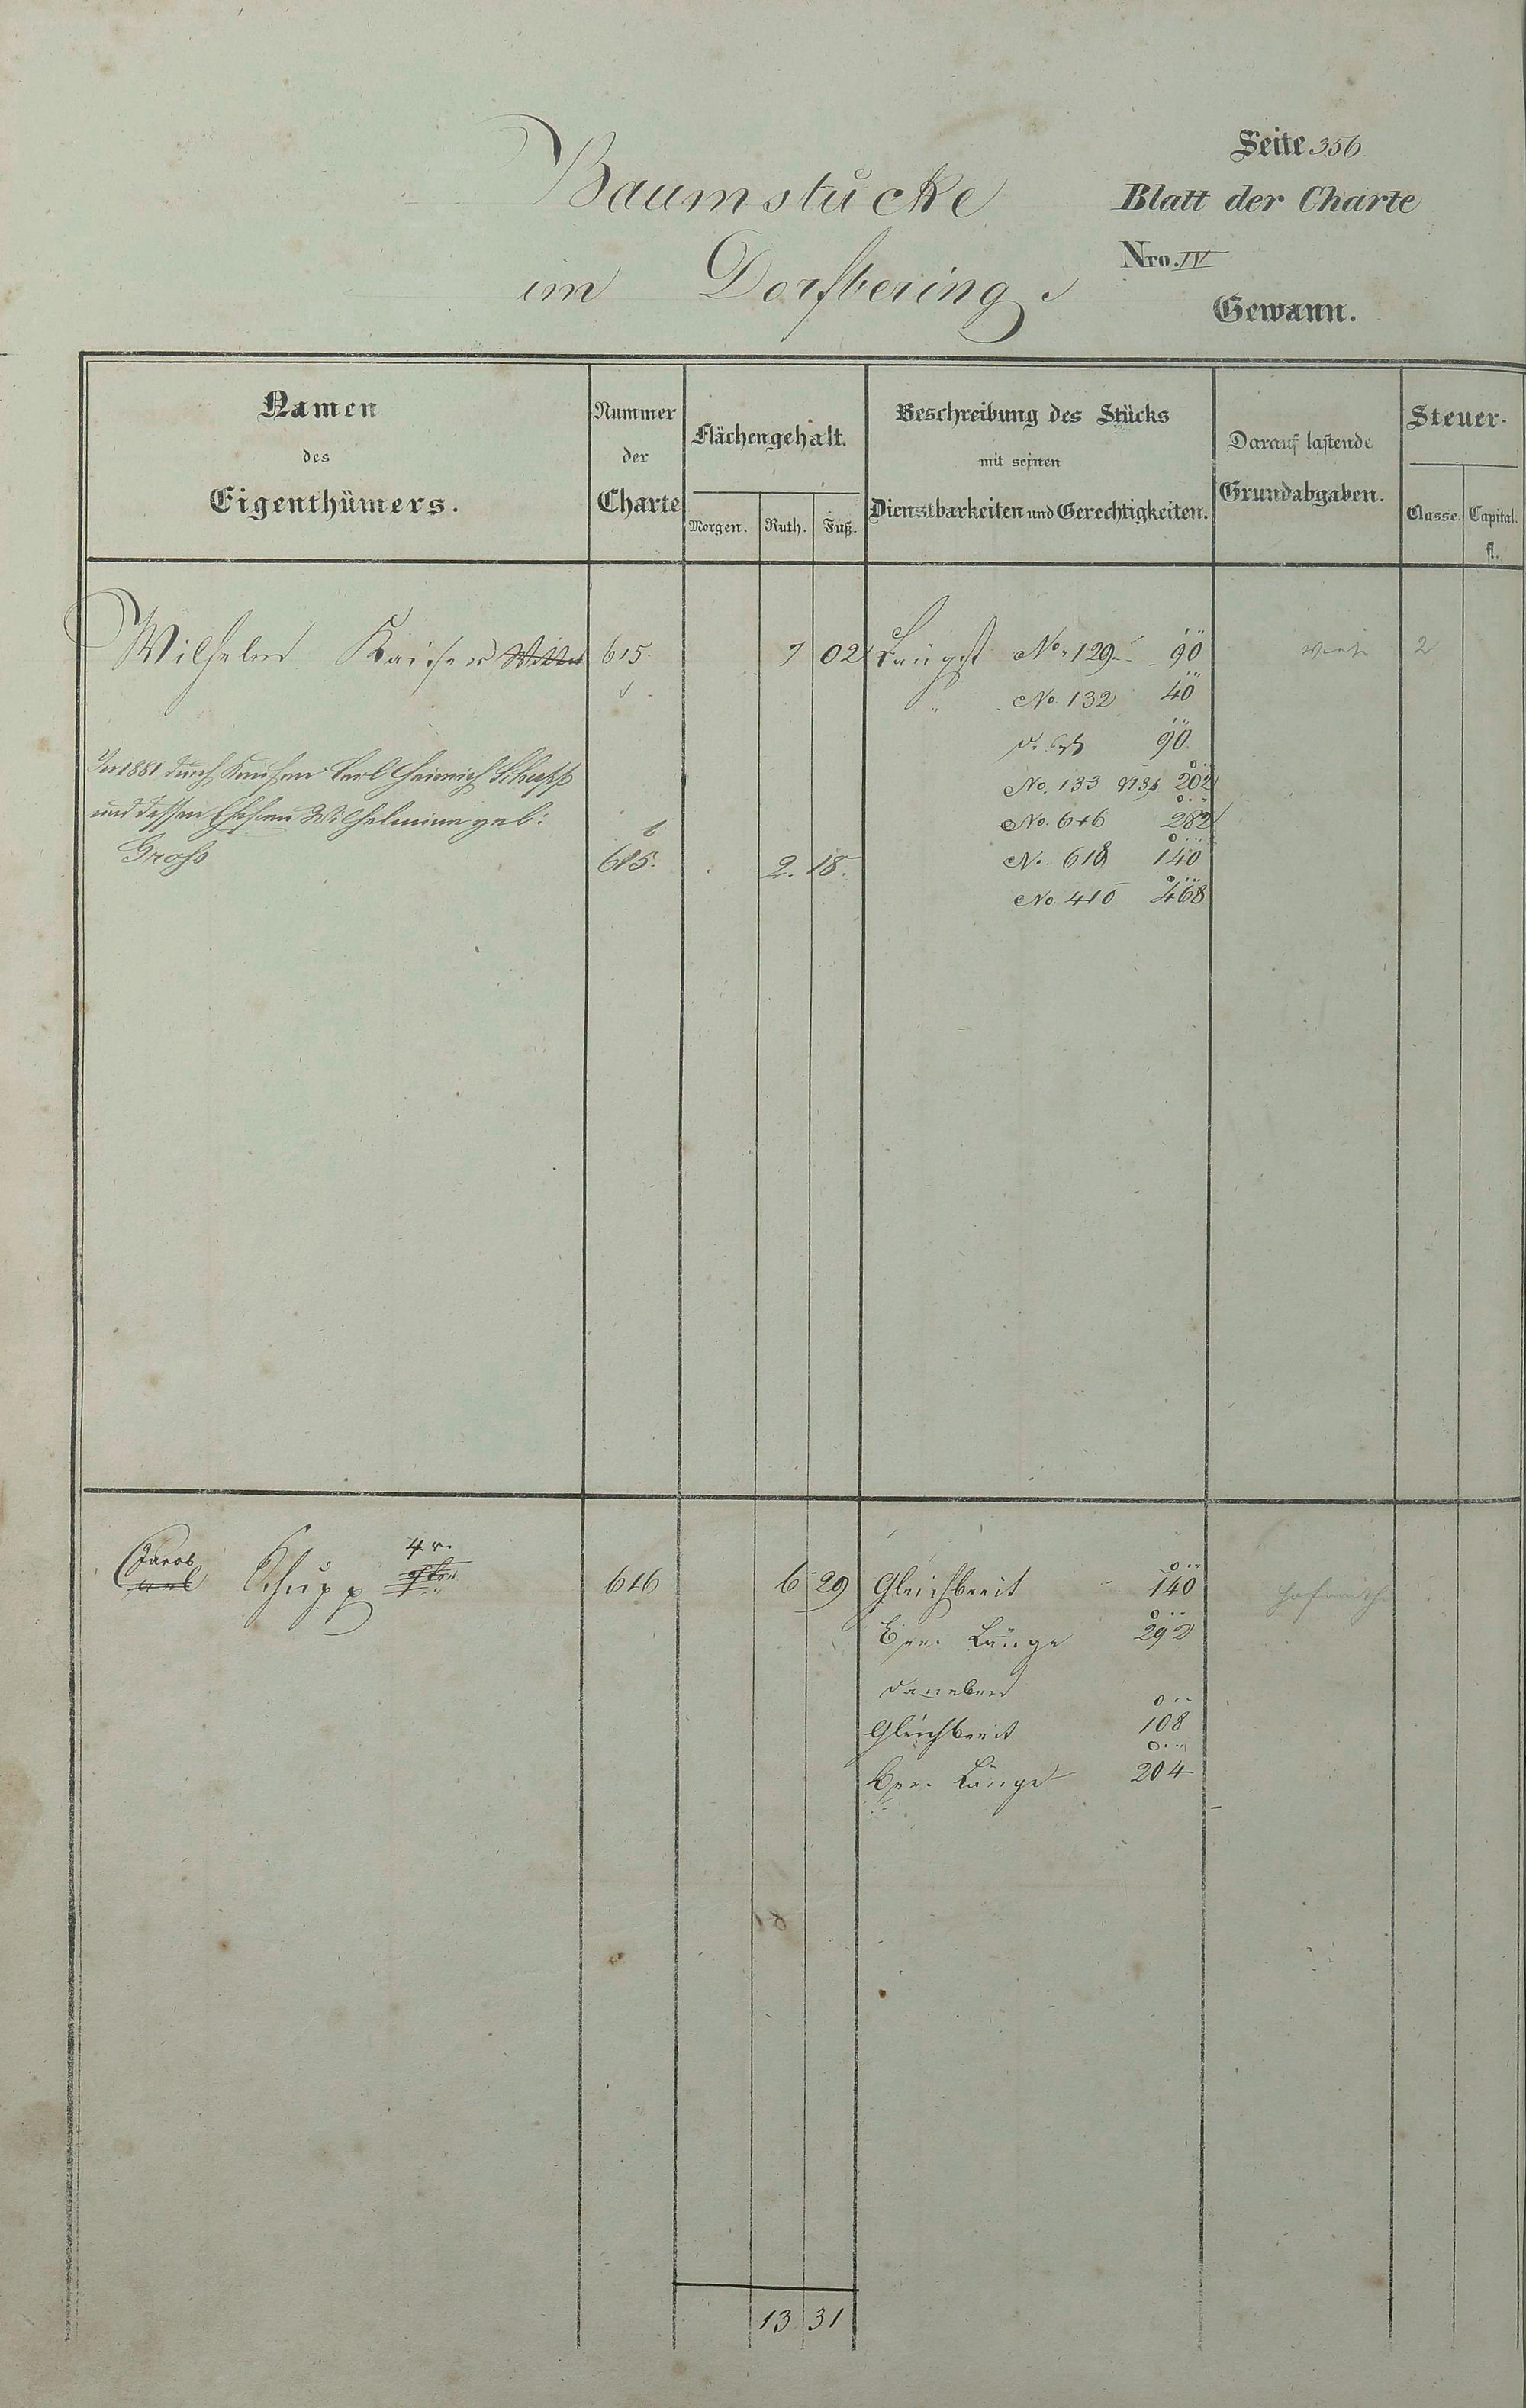 Seite 356
Baumstücke
Blatt der Charte
im Dorfbering
Nro. IV
Gewann.
Namen des Eigenthümers.
Nummer der Charte
Flächengehalt.
Morgen. Ruth. Fuß.
Beschreibung des Stücks mit seinen Dienstbarkeiten und Gerechtigkeiten.
Darauf lastende Grundabgaben.
Steuer-
Classe. Capital. fl.
Wilhelm Kaiser 615. 7 02 Längst No. 129 90 2
" No. 132 40
90
In 1881 durch Kauf an Carl Heinrich Schupp
No. 133 202
und dessen Ehefrau Wilhelmine geb:
No. 616 282
Gross
b
615. 2. 18.
No. 618 140
No. 410 468
Jacob Schupp 4r 616 6 29 Gleichbreit 140 Hofraithe
Länge 292
daneben
Gleichbreit 108
Länge 204
13 31